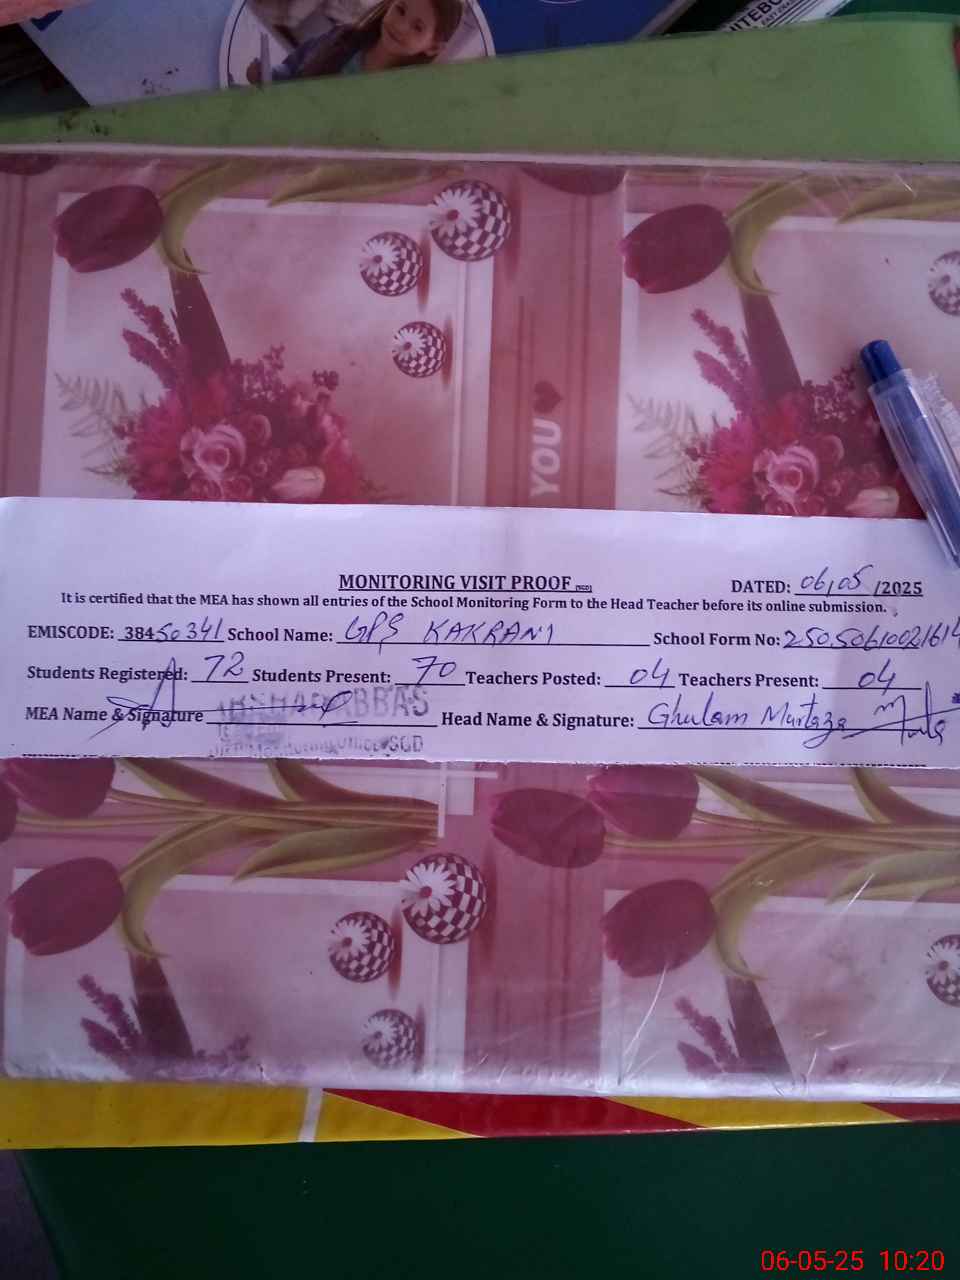 YOU
MONITORING VISIT PROOF (SGD)
DATED: 06/05/2025
It is certified that the MEA has shown all entries of the School Monitoring Form to the Head Teacher before its online submission.
EMISCODE: 38450341 School Name: GPS KAKRANI School Form No:
Students Registered: 72 Students Present: 70 Teachers Posted: 04 Teachers Present: 04
MEA Name & Signature ABBAS Head Name & Signature: Ghulam Murtaza
SGD
06-05-25 10:20